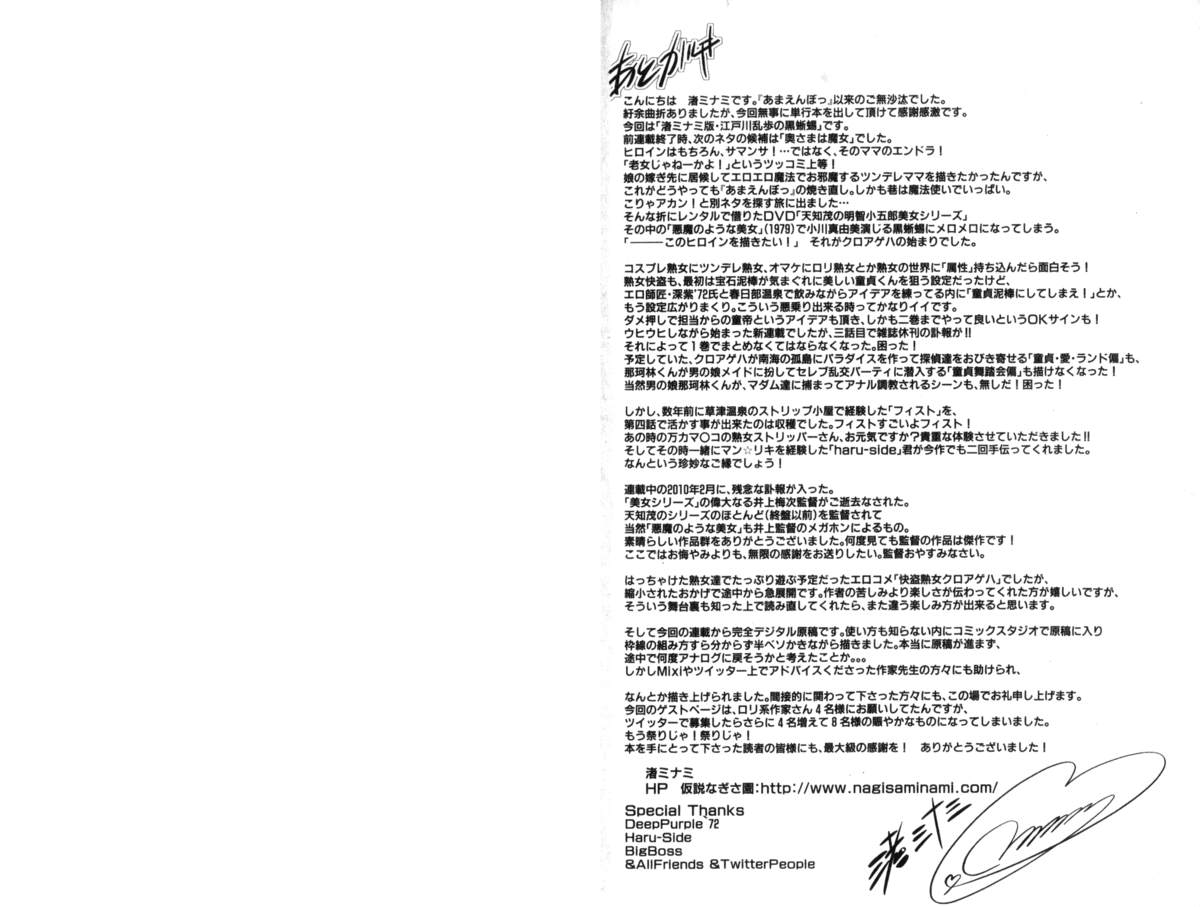 あとがき
こんにちは　渚ミナミです。『あまえんぼっ』以来のご無沙汰でした。
紆余曲折ありましたが、今回無事に単行本を出して頂けて感謝感激です。
今回は「渚ミナミ版・江戸川乱歩の黒蜥蜴」です。
前連載終了時、次のネタの候補は「奥さまは魔女」でした。
ヒロインはもちろん、サマンサ！…ではなく、そのママのエンドラ！
「老女じゃねーかよ！」というツッコミ上等！
娘の嫁ぎ先に居候してエロエロ魔法でお邪魔するツンデレママを描きたかったんですが、
これがどうやっても『あまえんぼっ』の焼き直し。しかも巷は魔法使いでいっぱい。
こりゃアカン！と別ネタを探す旅に出ました…
そんな折にレンタルで借りたDVD「天知茂の明智小五郎美女シリーズ」
その中の「悪魔のような美女」(1979)で小川真由美演じる黒蜥蜴にメロメロになってしまう。
「―――このヒロインを描きたい！」　それがクロアゲハの始まりでした。
コスプレ熟女にツンデレ熟女、オマケにロリ熟女とか熟女の世界に「属性」持ち込んだら面白そう！
熟女快盗も、最初は宝石泥棒が気まぐれに美しい童貞くんを狙う設定だったけど、
エロ師匠・深紫'72氏と春日部温泉で飲みながらアイデアを練ってる内に「童貞泥棒にしてしまえ！」とか、
もう設定広がりまくり。こういう悪乗り出来る時ってかなりイイです。
ダメ押しで担当からの童帝というアイデアも頂き、しかも二巻までやって良いというOKサインも！
ウヒウヒしながら始まった新連載でしたが、三話目で雑誌休刊の訃報が!!
それによって１巻でまとめなくてはならなくなった。困った！
予定していた、クロアゲハが南海の孤島にパラダイスを作って探偵達をおびき寄せる「童貞・愛・ランド偏」も、
那珂林くんが男の娘メイドに扮してセレブ乱交パーティに潜入する「童貞舞踏会偏」も描けなくなった！
当然男の娘那珂林くんが、マダム達に捕まってアナル調教されるシーンも、無しだ！困った！
しかし、数年前に草津温泉のストリップ小屋で経験した「フィスト」を、
第四話で活かす事が出来たのは収穫でした。フィストすごいよフィスト！
あの時の万カマ〇コの熟女ストリッパーさん、お元気ですか？貴重な体験させていただきました!!
そしてその時一緒にマン☆リキを経験した「haru-side」君が今作でも二回手伝ってくれました。
なんという珍妙なご縁でしょう！
連載中の2010年2月に、残念な訃報が入った。
「美女シリーズ」の偉大なる井上梅次監督がご逝去なされた。
天知茂のシリーズのほとんど(終盤以前)を監督されて
当然「悪魔のような美女」も井上監督のメガホンによるもの。
素晴らしい作品群をありがとうございました。何度見ても監督の作品は傑作です！
ここではお悔やみよりも、無限の感謝をお送りしたい。監督おやすみなさい。
はっちゃけた熟女達でたっぷり遊ぶ予定だったエロコメ「快盗熟女クロアゲハ」でしたが、
縮小されたおかげで途中から急展開です。作者の苦しみより楽しさが伝わってくれた方が嬉しいですが、
そういう舞台裏も知った上で読み直してくれたら、また違う楽しみ方が出来ると思います。
そして今回の連載から完全デジタル原稿です。使い方も知らない内にコミックスタジオで原稿に入り
枠線の組み方すら分からず半ベソかきながら描きました。本当に原稿が進まず、
途中で何度アナログに戻そうかと考えたことか。。。
しかしMixiやツイッター上でアドバイスくださった作家先生の方々にも助けられ、
なんとか描き上げられました。間接的に関わって下さった方々にも、この場でお礼申し上げます。
今回のゲストページは、ロリ系作家さん４名様にお願いしてたんですが、
ツイッターで募集したらさらに４名増えて８名様の賑やかなものになってしまいました。
もう祭りじゃ！祭りじゃ！
本を手にとって下さった読者の皆様にも、最大級の感謝を！　ありがとうございました！
渚ミナミ
HP　仮説なぎさ園:http://www.nagisaminami.com/
Special Thanks
DeepPurple '72
Haru-Side
BigBoss
&AllFriends &TwitterPeople
渚ミナミ